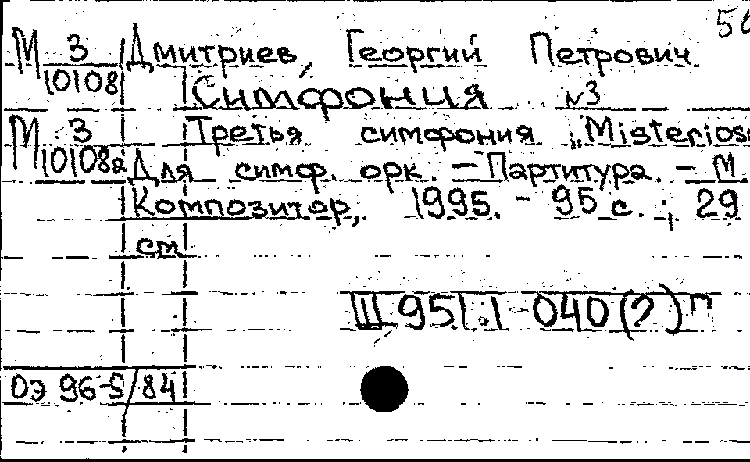 50
М 3 Дмитриев, Георгий Петрович
10108 Симфония №3
М 3 Третья симфония „Misterios
10108а Для симф. орк. — Партитура. - М.
Композитор, 1995. - 95 с. ; 29
ст
Ш 951.1-040(2)п
ОЭ 96-5/84